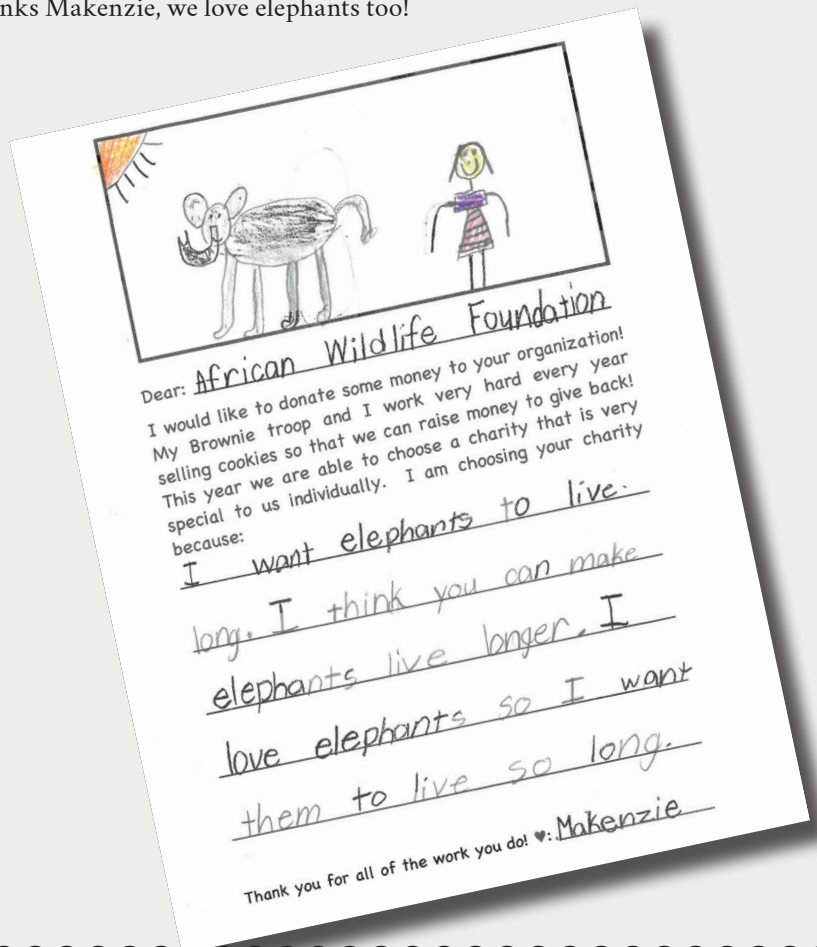 nks Makenzie, we love elephants too!
Dear: African Wildlife Foundation
I would like to donate some money to your organization!
My Brownie troop and I work very hard every year
selling cookies so that we can raise money to give back!
This year we are able to choose a charity that is very
special to us individually. I am choosing your charity
because:
I want elephants to live.
long. I think you can make
elephants live longer. I
love elephants so I want
them to live so long.
Thank you for all of the work you do! ♥: Makenzie